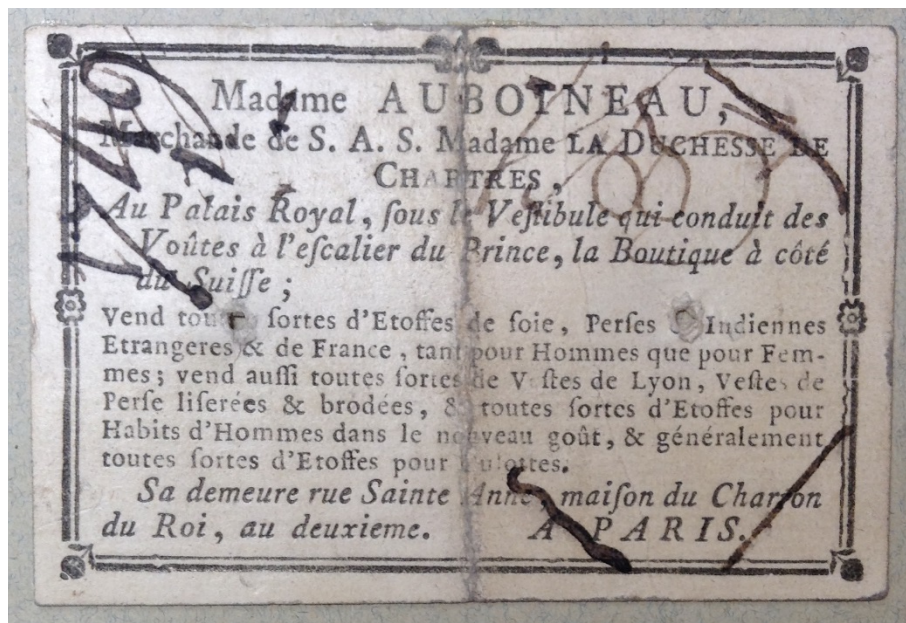 Madame AUBOINEAU,
Marchande de S. A. S. Madame LA DUCHESSE DE
CHARTRES,
Au Palais Royal, ſous le Veſtibule qui conduit des
Voûtes à l'eſcalier du Prince, la Boutique à côté
du Suiſſe ;
Vend toutes ſortes d'Etoffes de ſoie, Perſes & Indiennes
Etrangeres & de France, tant pour Hommes que pour Fem-
mes ; vend auſſi toutes ſortes de Veſtes de Lyon, Veſtes de
Perſe liſerées & brodées, & toutes ſortes d'Etoffes pour
Habits d'Hommes dans le nouveau goût, & généralement
toutes ſortes d'Etoffes pour Culottes.
Sa demeure rue Sainte Anne, maiſon du Charron
du Roi, au deuxieme. A PARIS.